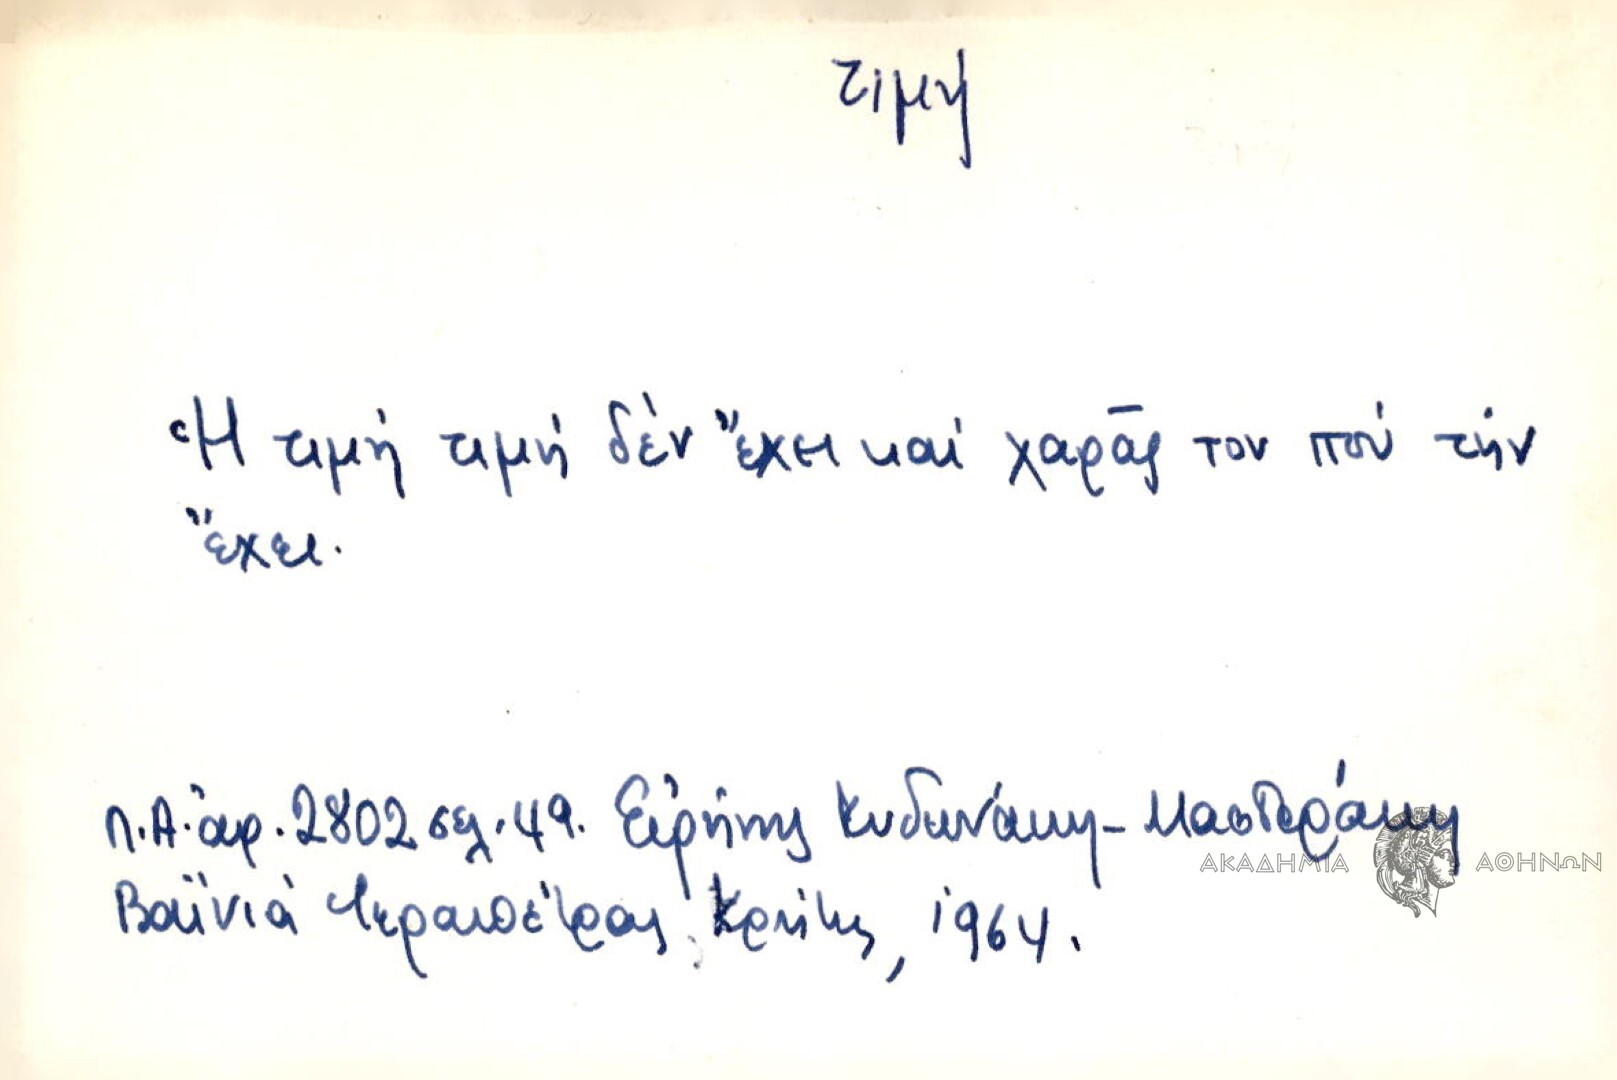 τιμή
Ἡ τιμή τιμή δὲν ἔχει καί χαρᾶς τον πού τήν
ἔχει.
Λ.Α. ἀρ. 2802 σελ. 49. Εἰρήνης Κυδωνάκη - Μαστεράκη
Βαϊνιά Ἱεραπέτρας Κρήτης, 1964.
ΑΚΑΔΗΜΙΑ ΑΘΗΝΩΝ